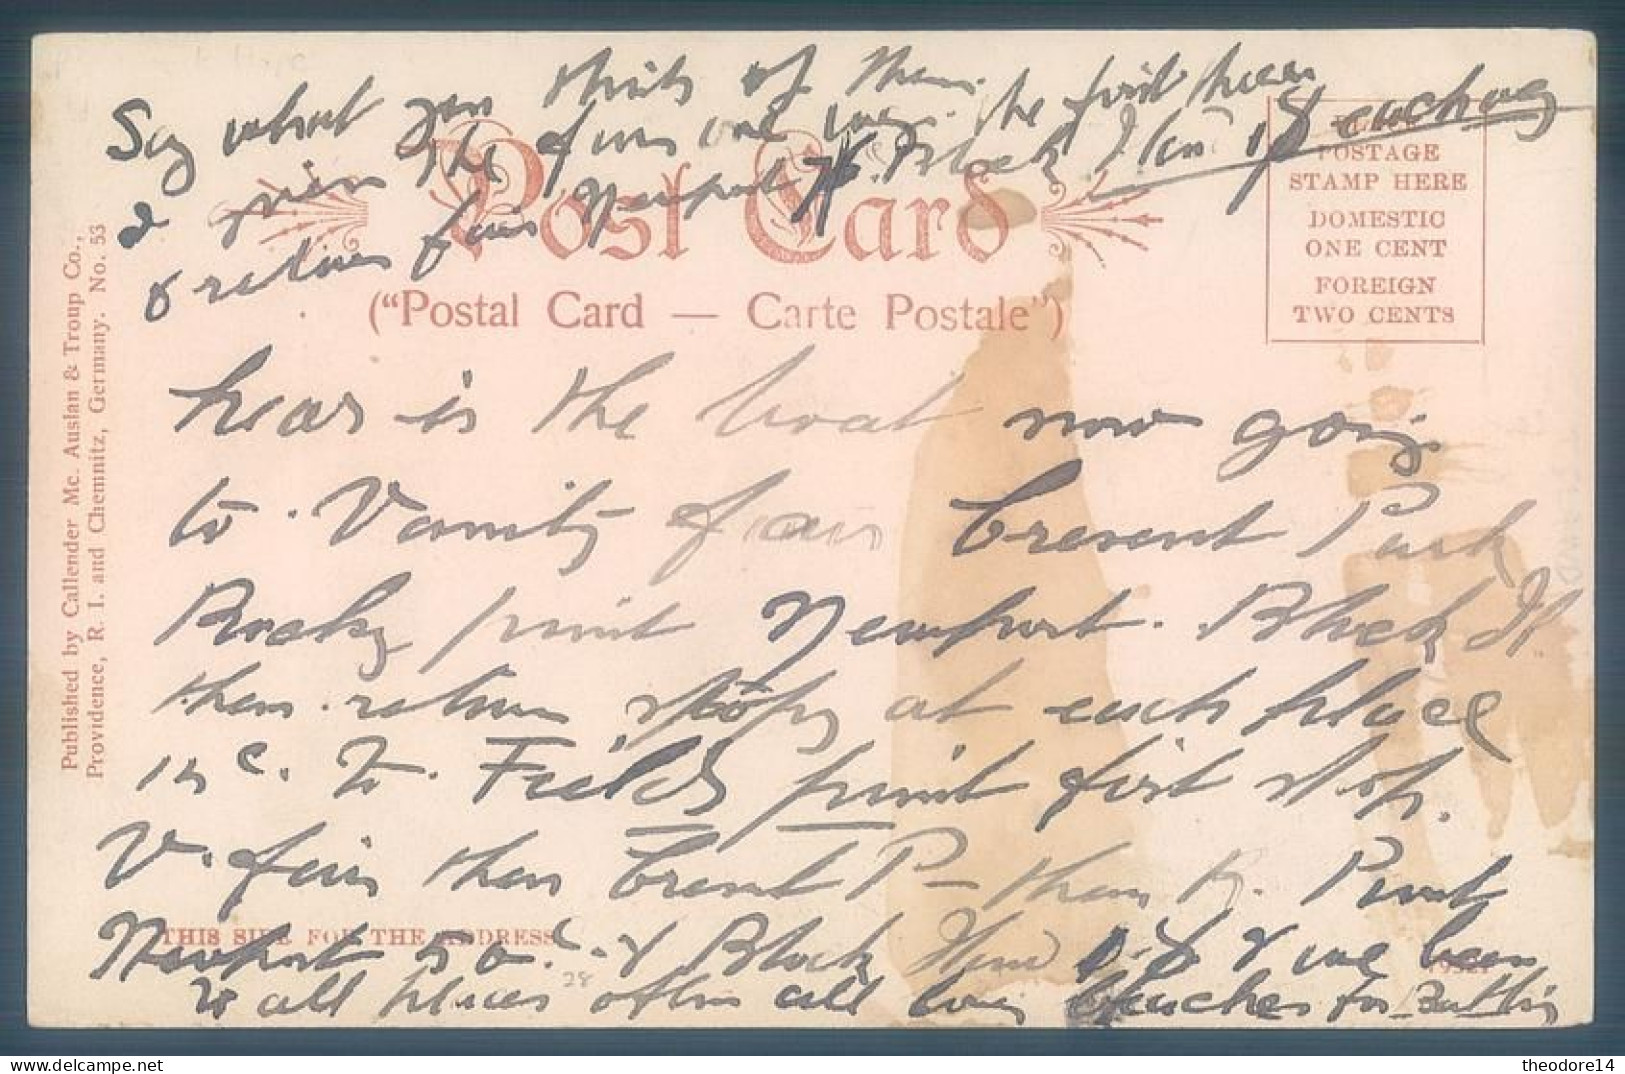 Say what you think of them.
I given the fares one way. the first here
& return fair Newport Block Island 1$ each way
Post Card
("Postal Card — Carte Postale")
PLACE
POSTAGE
STAMP HERE
DOMESTIC
ONE CENT
FOREIGN
TWO CENTS
Published by Callender Mc. Auslan & Troup Co.,
Providence, R. I. and Chemnitz, Germany. No. 53
hear is the boat now going
to Vanity fair Cresent Park
Rocky point Newport. Block Is
then return stops at each place
15 c. to. Fields point first stop.
V. fair then Cresent P— then R. Point
THIS SIDE FOR THE ADDRESS
Newport 50c. & Block 1$ & I've been
28
to all places often all long beaches for Bathing
theodore14